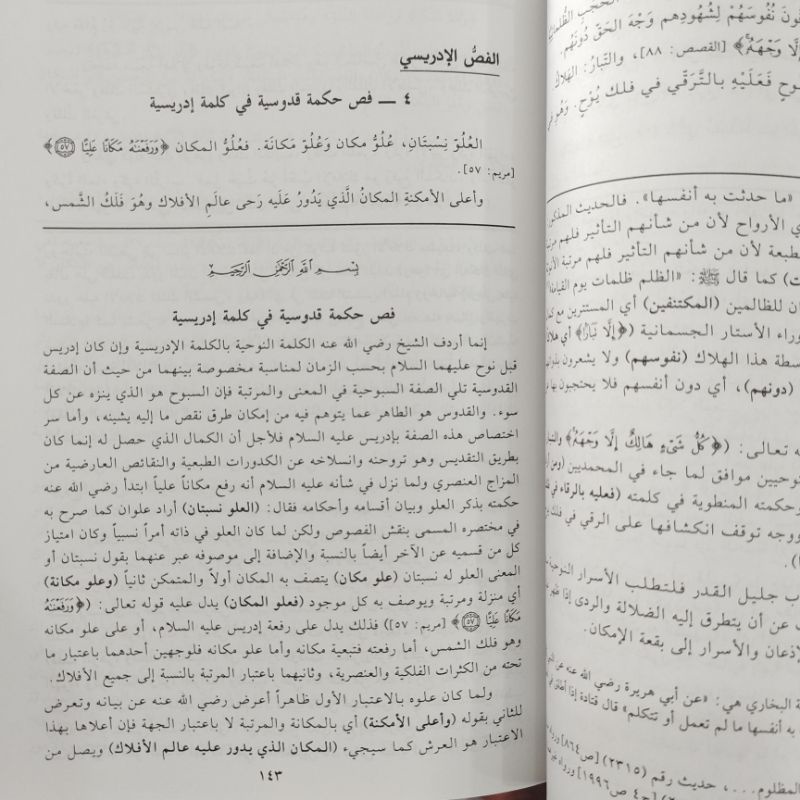 الفصُّ الإدريسي
٤ ـــ فص حكمة قدوسية في كلمة إدريسية
العُلُوّ نِسْبَتَانِ، عُلُوُّ مكان وَعُلُوّ مَكانَة. فعُلُوُّ المكان ﴿وَرَفَعْنَهُ مَكَانًا عَلِيًّا ٥٧﴾
[مريم: ٥٧].
وأعلى الأمكنةِ المكانُ الَّذي يَدُورُ عَلَيه رَحى عالَمِ الأفلاك وهُوَ فَلَكُ الشَّمس،
بِسْمِ اللَّهِ الرَّحْمَنِ الرَّحِيمِ
فص حكمة قدوسية في كلمة إدريسية
إنما أردف الشيخ رضي الله عنه الكلمة النوحية بالكلمة الإدريسية وإن كان إدريس
قبل نوح عليهما السلام بحسب الزمان لمناسبة مخصوصة بينهما من حيث أن الصفة
القدوسية تلي الصفة السبوحية في المعنى والمرتبة فإن السبوح هو الذي ينزه عن كل
سوء. والقدوس هو الطاهر عما يتوهم فيه من إمكان طرق نقص ما إليه يشينه، وأما سر
اختصاص هذه الصفة بإدريس عليه السلام فلأجل أن الكمال الذي حصل له إنما كان
بطريق التقديس وهو تروحنه وانسلاخه عن الكدورات الطبعية والنقائص العارضية من
المزاج العنصري ولما نزل في شأنه عليه السلام أنه رفع مكاناً علياً ابتدأ رضي الله عنه
حكمته بذكر العلو وبيان أقسامه وأحكامه فقال: (العلو نسبتان) أراد علوان كما صرح به
في مختصره المسمى بنقش الفصوص ولكن لما كان العلو في ذاته أمراً نسبياً وكان امتياز
كل من قسميه عن الآخر أيضاً بالنسبة والإضافة إلى موصوفه عبر عنهما بقول نسبتان أو
المعنى العلو له نسبتان (علو مكان) يتصف به المكان أولاً والمتمكن ثانياً (وعلو مكانة)
أي منزلة ومرتبة ويوصف به كل موجود (فعلو المكان) يدل عليه قوله تعالى: (﴿وَرَفَعْنَهُ
مَكَانًا عَلِيًّا ٥٧﴾ [مريم: ٥٧]) فذلك يدل على رفعة إدريس عليه السلام، أو على علو مكانه
وهو فلك الشمس، أما رفعته فتبعية مكانه وأما علو مكانه فلوجهين أحدهما باعتبار ما
تحته من الكثرات الفلكية والعنصرية، وثانيهما باعتبار المرتبة بالنسبة إلى جميع الأفلاك.
ولما كان علوه بالاعتبار الأول ظاهراً أعرض رضي الله عنه عن بيانه وتعرض
للثاني بقوله (وأعلى الأمكنة) أي بالمكانة والمرتبة لا باعتبار الجهة فإن أعلاها بهذا
الاعتبار هو العرش كما سيجيء (المكان الذي يدور عليه عالم الأفلاك) ويصل من
١٤٣
نُفُوسَهُمْ لِشُهُودِهم وَجْهَ الحَقّ دُونَهُم.
إِلَّا وَجْهَهُ﴾ [القصص: ٨٨]، والتَبارُ: الهَلاك
فَعَلَيْهِ بالتَّرَقِّي في فلك يُوْحِ. وَهُوَ في
«ما حدثت به أنفسها». فالحديث المذكور
الأرواح لأن من شأنهم التأثير فلهم مرتبة
لأن من شأنهم التأثير فلهم مرتبة
كما قال ﷺ: «الظلم ظلمات يوم القيامة»
للظالمين (المكتنفين) أي المستترين مع
وراء الأستار الجسمانية (﴿إِلَّا نَبَارًا﴾ أي هلاكاً
هذا الهلاك (نفوسهم) ولا يشعرون
(دونهم)، أي دون أنفسهم فلا يحتجبون بها
تعالى: (﴿كُلُّ شَيْءٍ هَالِكٌ إِلَّا وَجْهَهُ﴾
موافق لما جاء في المحمديين
وحكمته المنطوية في كلمته (فعليه بالرقاء
ووجه توقف انكشافها على الرقي في فلك
جليل القدر فلتطلب الأسرار النوحية
عن أن يتطرق إليه الضلالة والردى إذا
والأسرار إلى بقعة الإمكان.
البخاري هي: «عن أبي هريرة رضي الله عنه عن
به أنفسها ما لم تعمل أو تتكلم» قال قتادة إذا
المظلوم...، حديث رقم (٢٣١٥) [ص٨٦٤